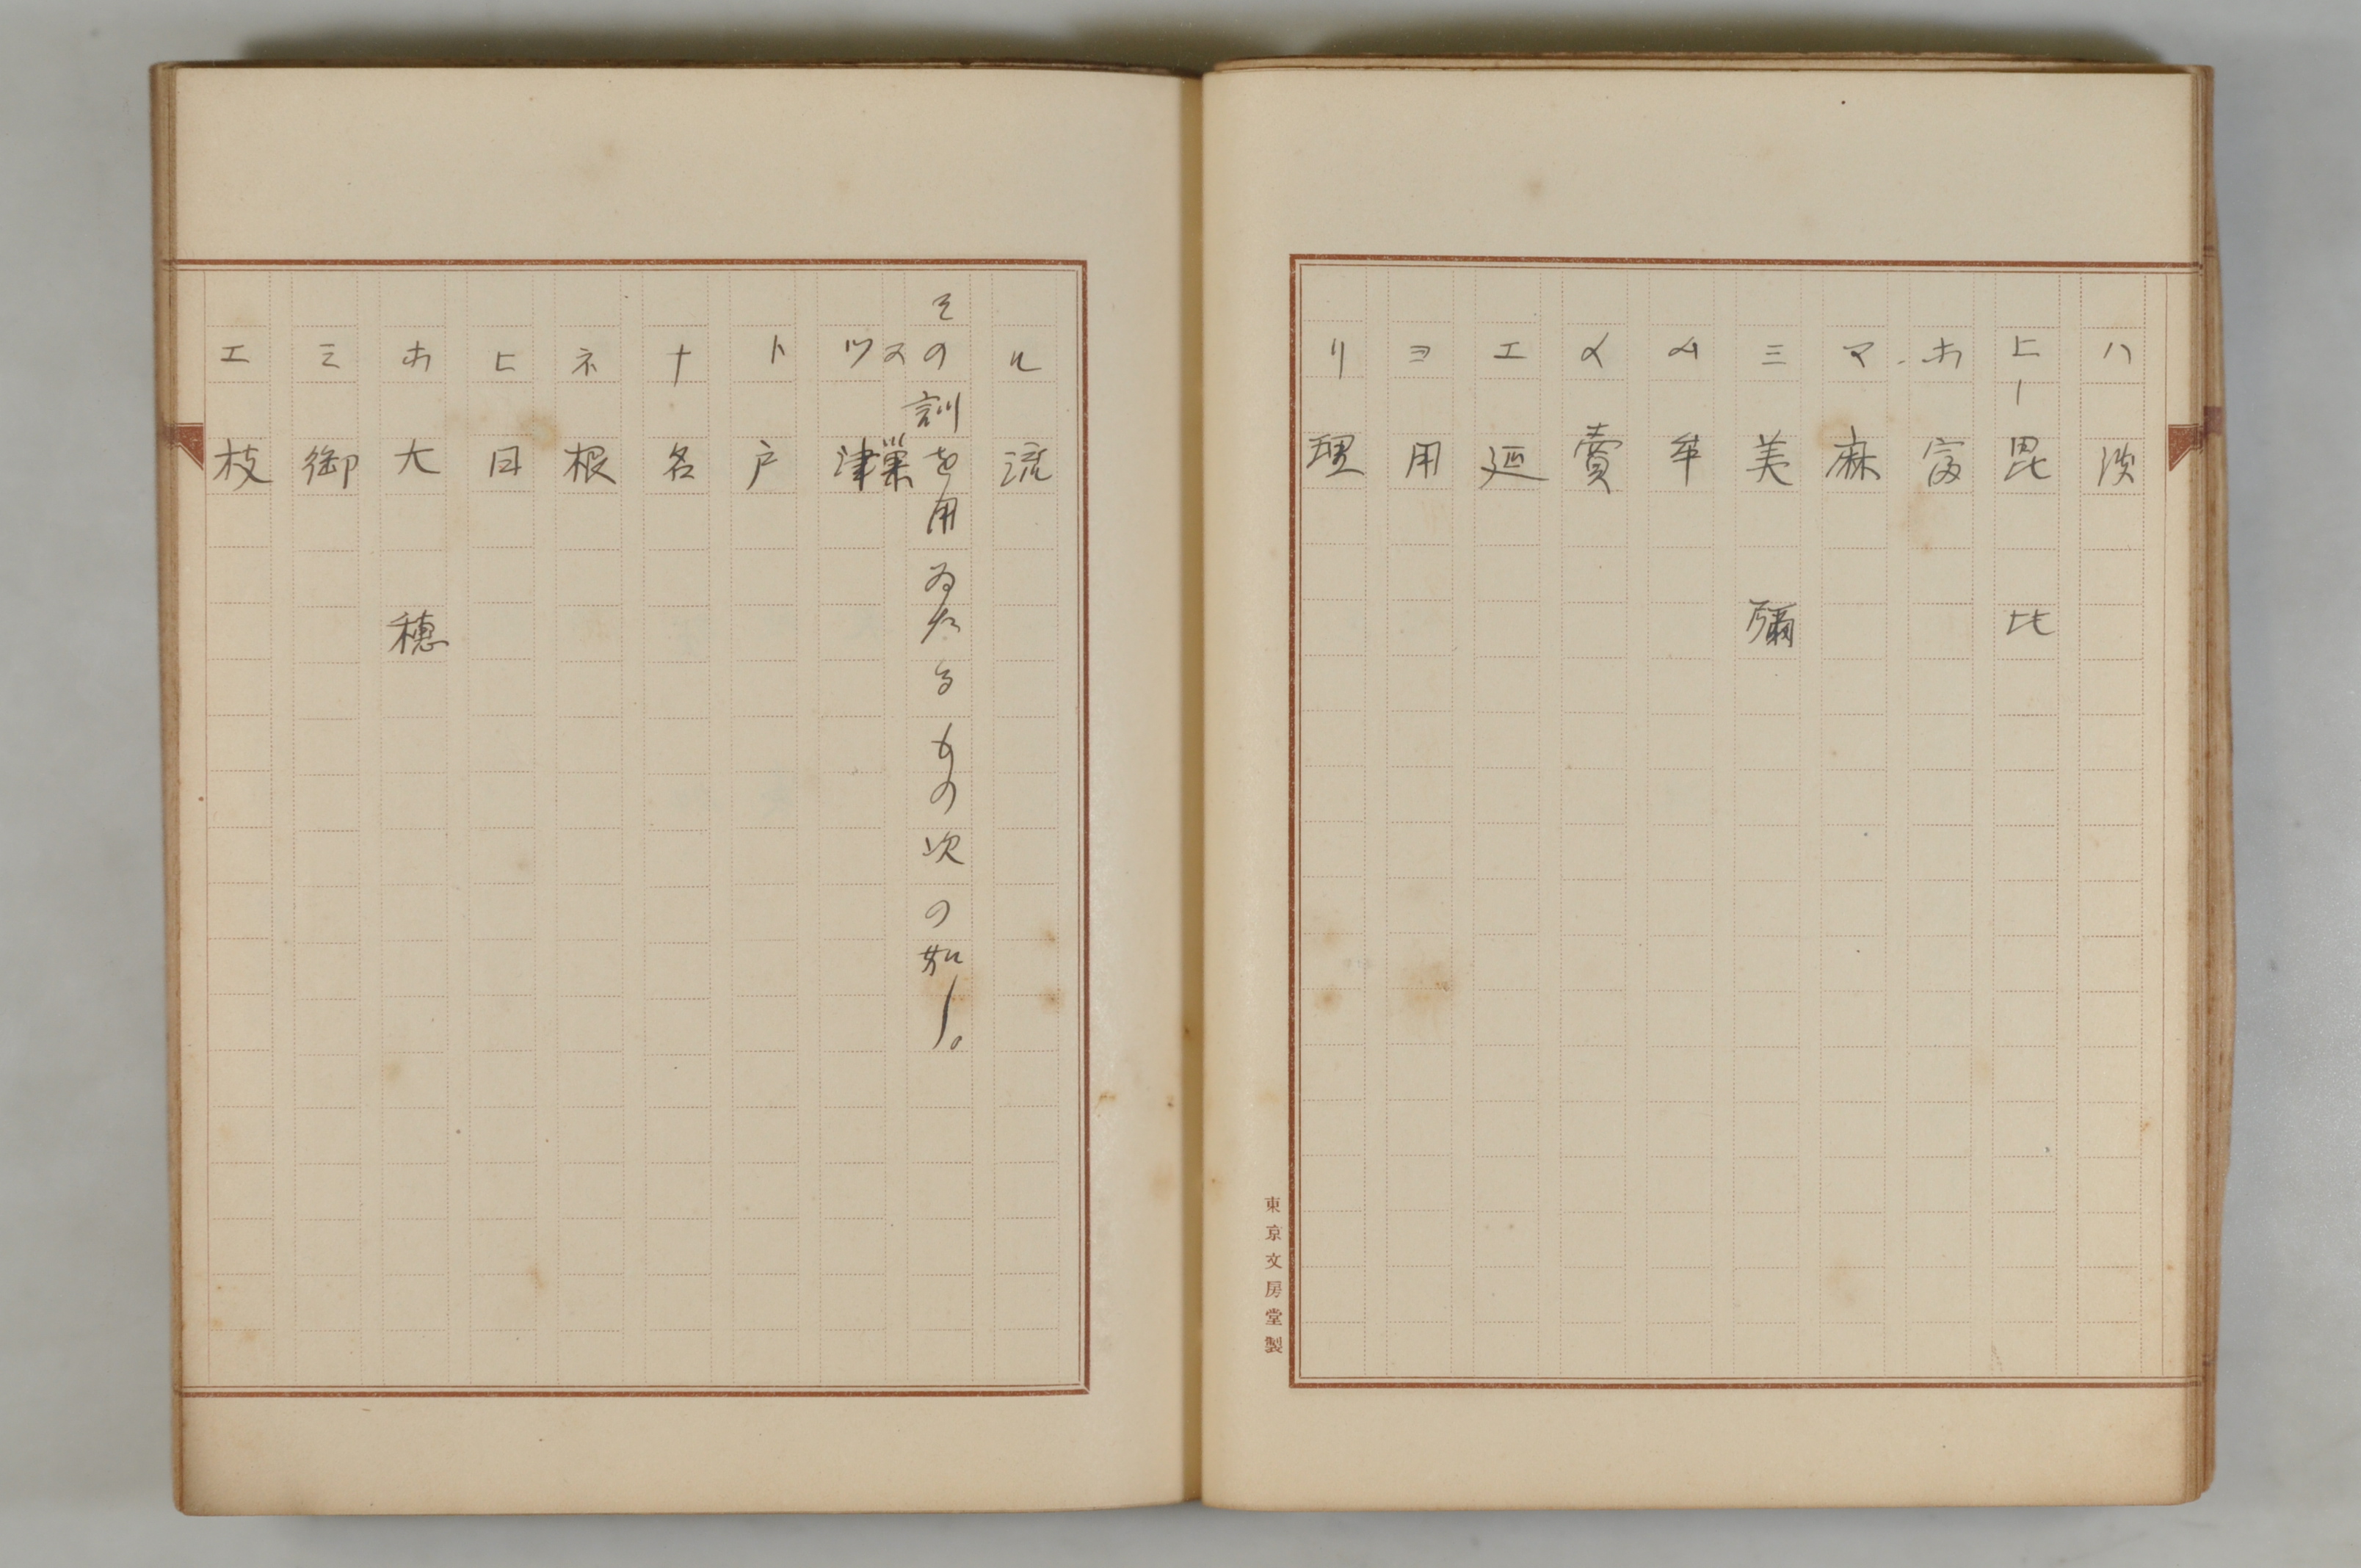 ハ 波
ヒー 毘 比
ホ 富
マ 麻
ミ 美 彌
ム 牟
メ 賣
エ 延
ヨ 用
リ 理
東京文房堂製
ル 流
その訓を用ゐたるもの次の如し。
ス 巣
ツ 津
ト 戸
ナ 名
ネ 根
ヒ 日
ホ 大 穂
ミ 御
エ 枝